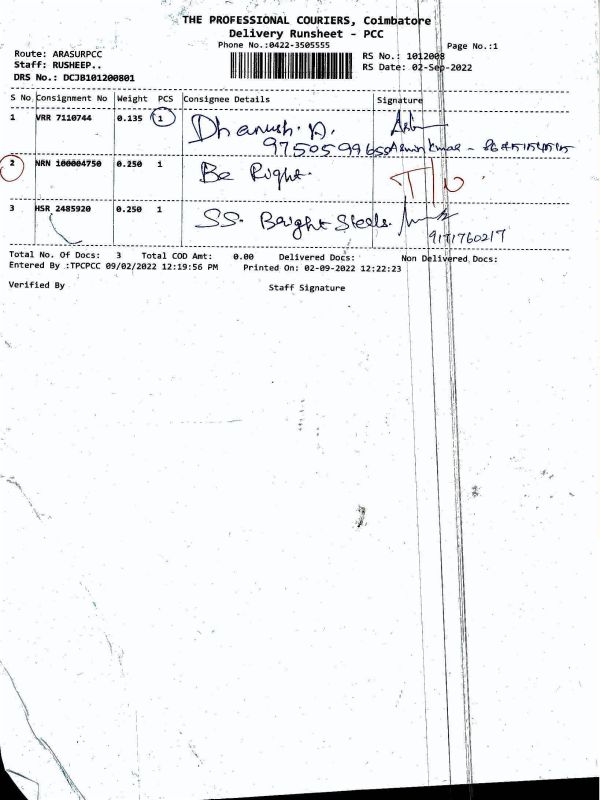 THE PROFESSIONAL COURIERS, Coimbatore
Delivery Runsheet - PCC
Phone No.:0422-3505555
Page No.:1
Route: ARASURPCC
RS No.: 1012008
Staff: RUSHEEP..
RS Date: 02-Sep-2022
DRS No.: DCJB101200801
S No Consignment No Weight PCS Consignee Details Signature
1 VRR 7110744 0.135 1 Dhanush. A.
9750599650
2 NRN 100004750 0.250 1 Be Right.
3 HSR 2485920 0.250 1 SS. Bright Steels.
9171760217
Total No. Of Docs: 3 Total COD Amt: 0.00 Delivered Docs: Non Delivered Docs:
Entered By :TPCPCC 09/02/2022 12:19:56 PM Printed On: 02-09-2022 12:22:23
Verified By Staff Signature